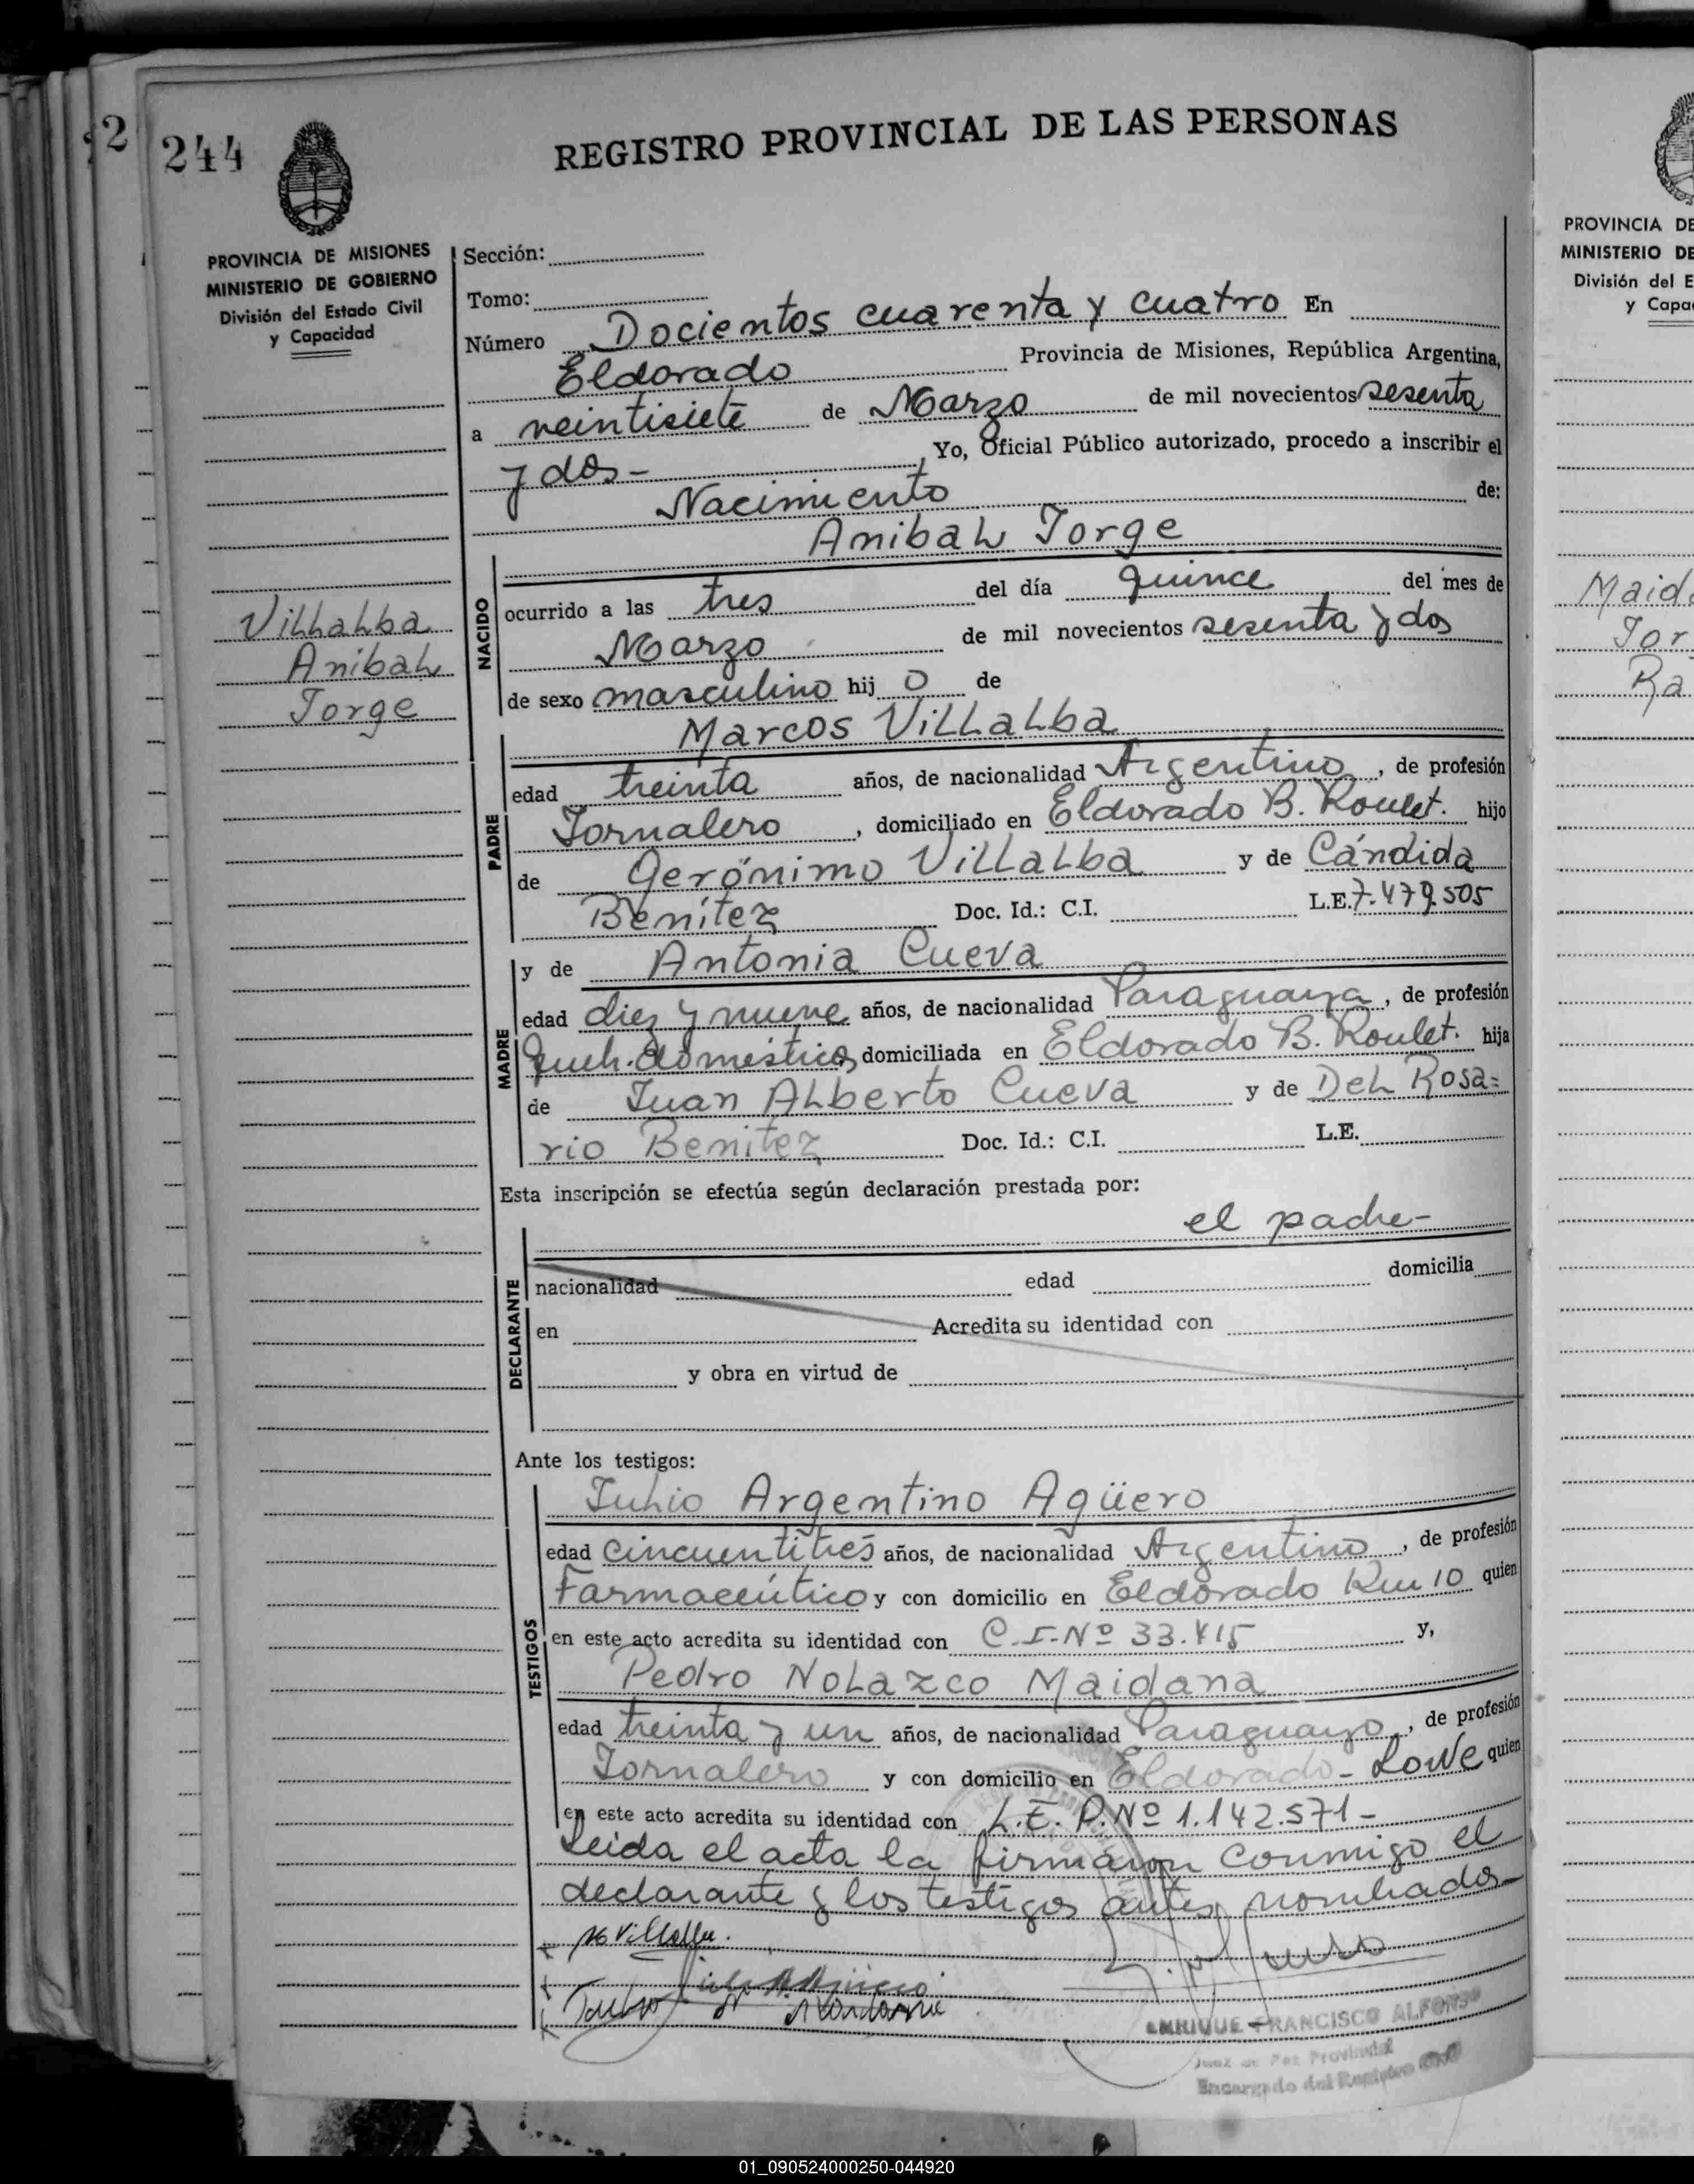 2
244
REGISTRO PROVINCIAL DE LAS PERSONAS
PROVINCIA DE MISIONES
MINISTERIO DE GOBIERNO
División del Estado Civil
y Capacidad
Villalba
Anibal
Jorge
Sección:
Tomo:
Número Docientos cuarenta y cuatro En
Eldorado Provincia de Misiones, República Argentina,
a veintisiete de Marzo de mil novecientos sesenta
y dos- Yo, Oficial Público autorizado, procedo a inscribir el
Nacimiento de:
Anibal Jorge
NACIDO
ocurrido a las tres del día quince del mes de
Marzo de mil novecientos sesenta y dos
de sexo masculino hij o de
Marcos Villalba
PADRE
edad treinta años, de nacionalidad Argentino, de profesión
Jornalero, domiciliado en Eldorado B. Roulet. hijo
de Gerónimo Villalba y de Cándida
Benítez Doc. Id.: C.I. L.E. 7.479.505
y de Antonia Cueva
MADRE
edad diez y nueve años, de nacionalidad Paraguaya, de profesión
queh. domésticos, domiciliada en Eldorado B. Roulet. hija
de Juan Alberto Cueva y de Del Rosa=
rio Benitez Doc. Id.: C.I. L.E.
Esta inscripción se efectúa según declaración prestada por:
el padre-
DECLARANTE
nacionalidad edad domicilia
en Acredita su identidad con
y obra en virtud de
Ante los testigos:
TESTIGOS
Julio Argentino Agüero
edad cincuentitrés años, de nacionalidad Argentino, de profesión
Farmacéutico y con domicilio en Eldorado Km 10 quien
en este acto acredita su identidad con C.I. Nº 33.415 y,
Pedro Nolazco Maidana
edad treinta y un años, de nacionalidad Paraguayo, de profesión
Jornalero y con domicilio en Eldorado - Lowe quien
en este acto acredita su identidad con L.E. P. Nº 1.142.571-
Leida el acta la firmaron conmigo el
declarante y los testigos antes nombrados-
M Villalba.
ENRIQUE FRANCISCO ALFONSO
Juez de Paz Provincial
Encargado del Registro Civil
PROVINCIA DE
MINISTERIO DE
División del E
y Capa
Maida
Jor
Ra
01_090524000250-044920